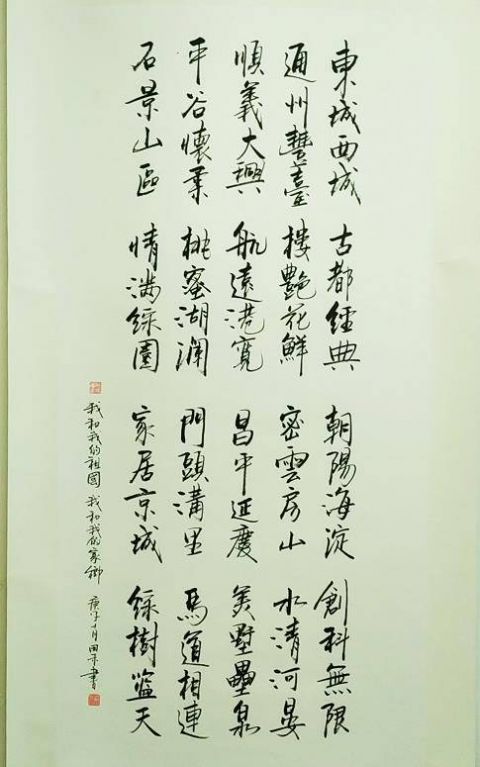 東城西城 古都經典 朝陽海淀 創科無限
通州豐臺 樓艷花鮮 密雲房山 水清河晏
順義大興 航遠港寬 昌平延慶 美墅壘泉
平谷懷柔 桃蜜湖瀾 門頭溝里 馬道相連
石景山區 情滿綠園 家居京城 綠樹藍天
我和我的祖國 我和我的家鄉 庚子十月田 書